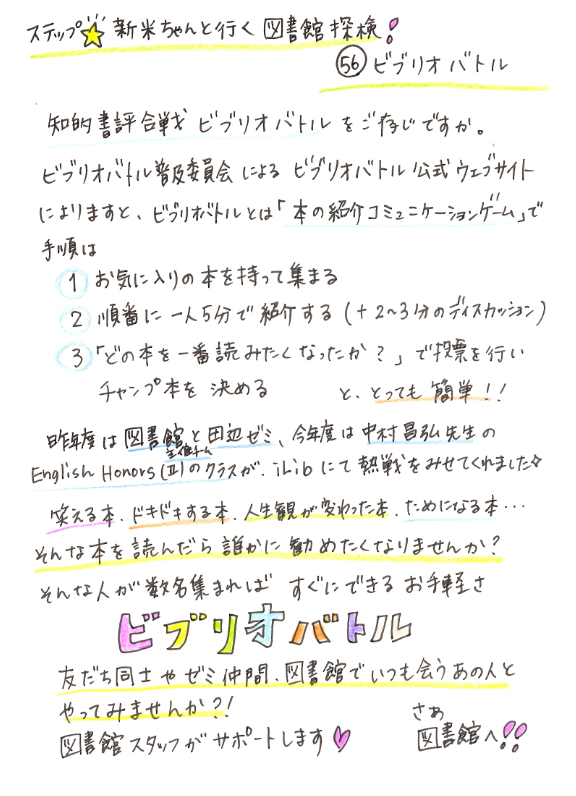 ステップ☆ 新米ちゃんと行く 図書館探検!
56 ビブリオバトル
知的書評合戦 ビブリオバトルをご存じですか。
ビブリオバトル普及委員会による ビブリオバトル公式ウェブサイト
によりますと、ビブリオバトルとは「本の紹介コミュニケーションゲーム」で
手順は
1 お気に入りの本を持って集まる
2 順番に一人5分で紹介する(+2〜3分のディスカッション)
3 「どの本を一番読みたくなったか?」で投票を行い
チャンプ本を決める と、とっても簡単!!
昨年度は図書館と田辺ゼミ、今年度は中村昌弘先生の
English Honors(Ⅲ)のクラスが、iLibにて熱戦をみせてくれました☆
笑える本、ドキドキする本、人生観が変わった本、ためになる本…
そんな本を読んだら誰かに勧めたくなりませんか?
そんな人が数名集まれば すぐにできるお手軽さ
ビブリオバトル
友だち同士やゼミ仲間、図書館でいつも会うあの人と
やってみませんか?!
図書館スタッフがサポートします♥
さあ
図書館へ!!